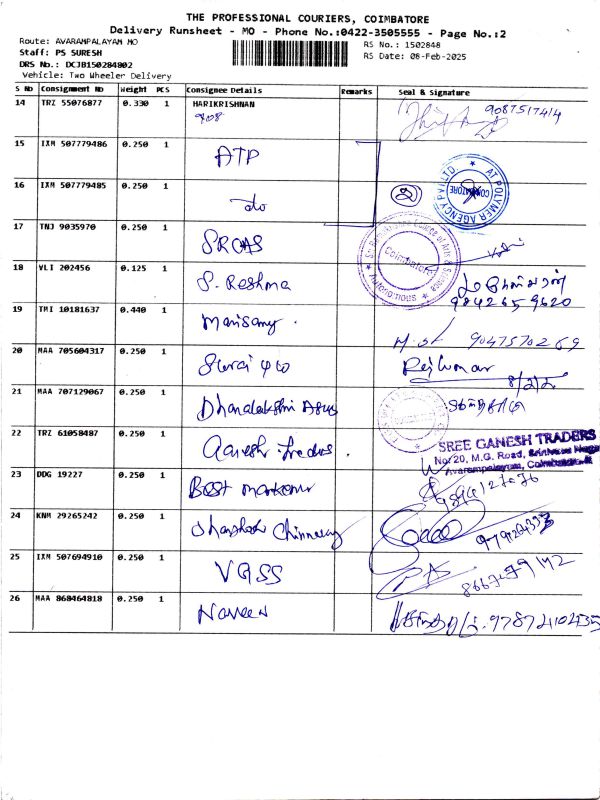 THE PROFESSIONAL COURIERS, COIMBATORE
Delivery Runsheet - MO - Phone No.:0422-3505555 - Page No.:2
Route: AVARAMPALAYAM MO
RS No.: 1502848
Staff: PS SURESH
RS Date: 08-Feb-2025
DRS No.: DCJB150284802
Vehicle: Two Wheeler Delivery
S No Consignment No Weight PCS Consignee Details Remarks Seal & signature
14 TRZ 55076877 0.330 1 HARIKRISHNAN 9087517414
908
15 IXM 507779486 0.250 1 ATP
AT POLYMER AGENCY Pvt LTD. COIMBATORE
16 IXM 507779485 0.250 1 do
17 TNJ 9035970 0.250 1 SRCAS
Sri Ramakrishna College of Arts & Science Coimbatore Autonomous
18 VLI 202456 0.125 1 S. Reshma
9842659620
19 TMI 10181637 0.440 1 Marisamy.
9047570269
20 MAA 705604317 0.250 1
Rajkumar
8/2/2
21 MAA 707129067 0.250 1 Dhanalakshmi
22 TRZ 61058487 0.250 1 Ganesh Traders.
SREE GANESH TRADERS
No: 20, M.G. Road, Srinivasa Nagar
Avarampalayam, Coimbatore
23 DDG 19227 0.250 1 Best
24 KNM 29265242 0.250 1
25 IXM 507694910 0.250 1 VGSS
26 MAA 868464818 0.250 1 Naveen